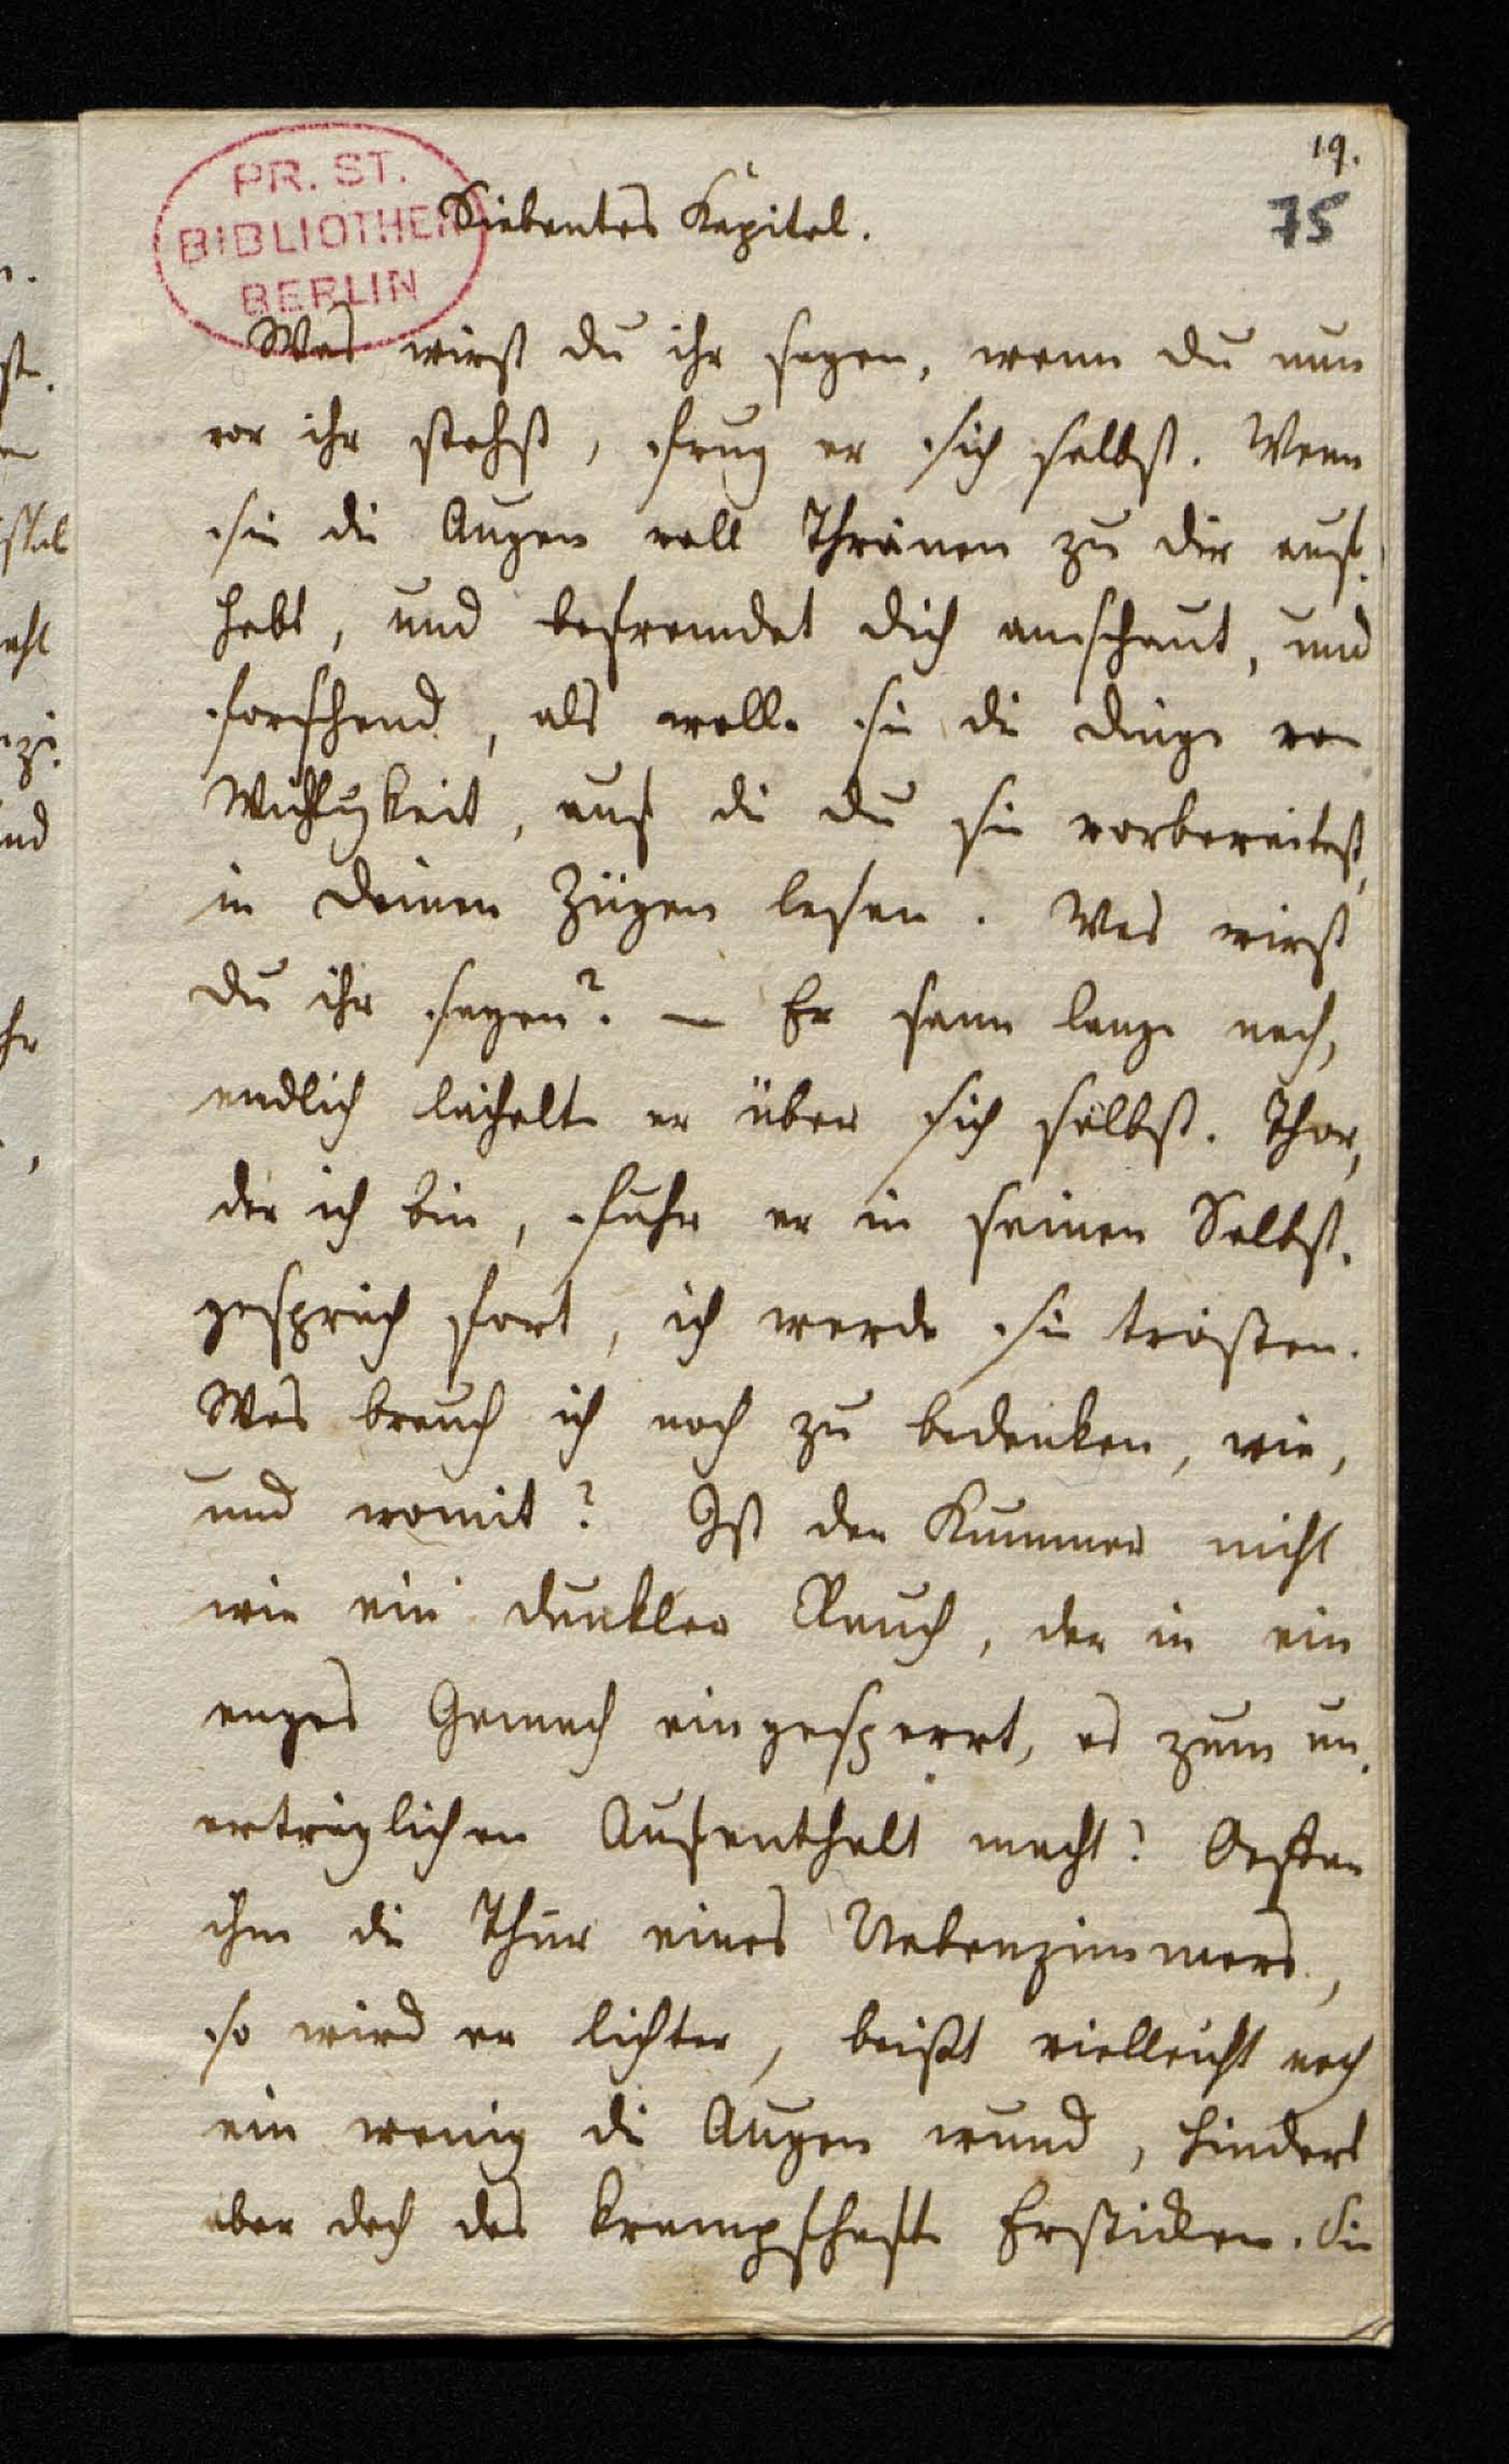 19.
75
PR. ST.
BIBLIOTHEK
BERLIN
Siebentes Kapitel.
Was wirst du ihr sagen, wenn du nun
vor ihr stehst, frug er sich selbst. Wenn
sie die Augen voll Thränen zu dir auf-
hebt, und befremdet dich anschaut, und
forschend, als wolle sie die Dinge von
Wichtigkeit, auf die du sie vorbereitest,
in deinen Zügen lesen. Was wirst
du ihr sagen? — Er sann lange nach,
endlich lächelte er über sich selbst. Thor,
der ich bin, fuhr er in seinen Selbst-
gespräch fort, ich werde sie trösten.
Was brauch ich noch zu bedenken, wie,
und womit? Ist der Kummer nicht
wie ein dunkler Rauch, der in ein
enges Gemach eingesperrt, es zum un-
erträglichen Aufenthalt macht? Oeffne
ihm die Thür eines Nebenzimmers,
so wird er lichter, beißt vielleicht noch
ein wenig die Augen wund, hindert
aber doch das krampfhafte Ersticken. Die